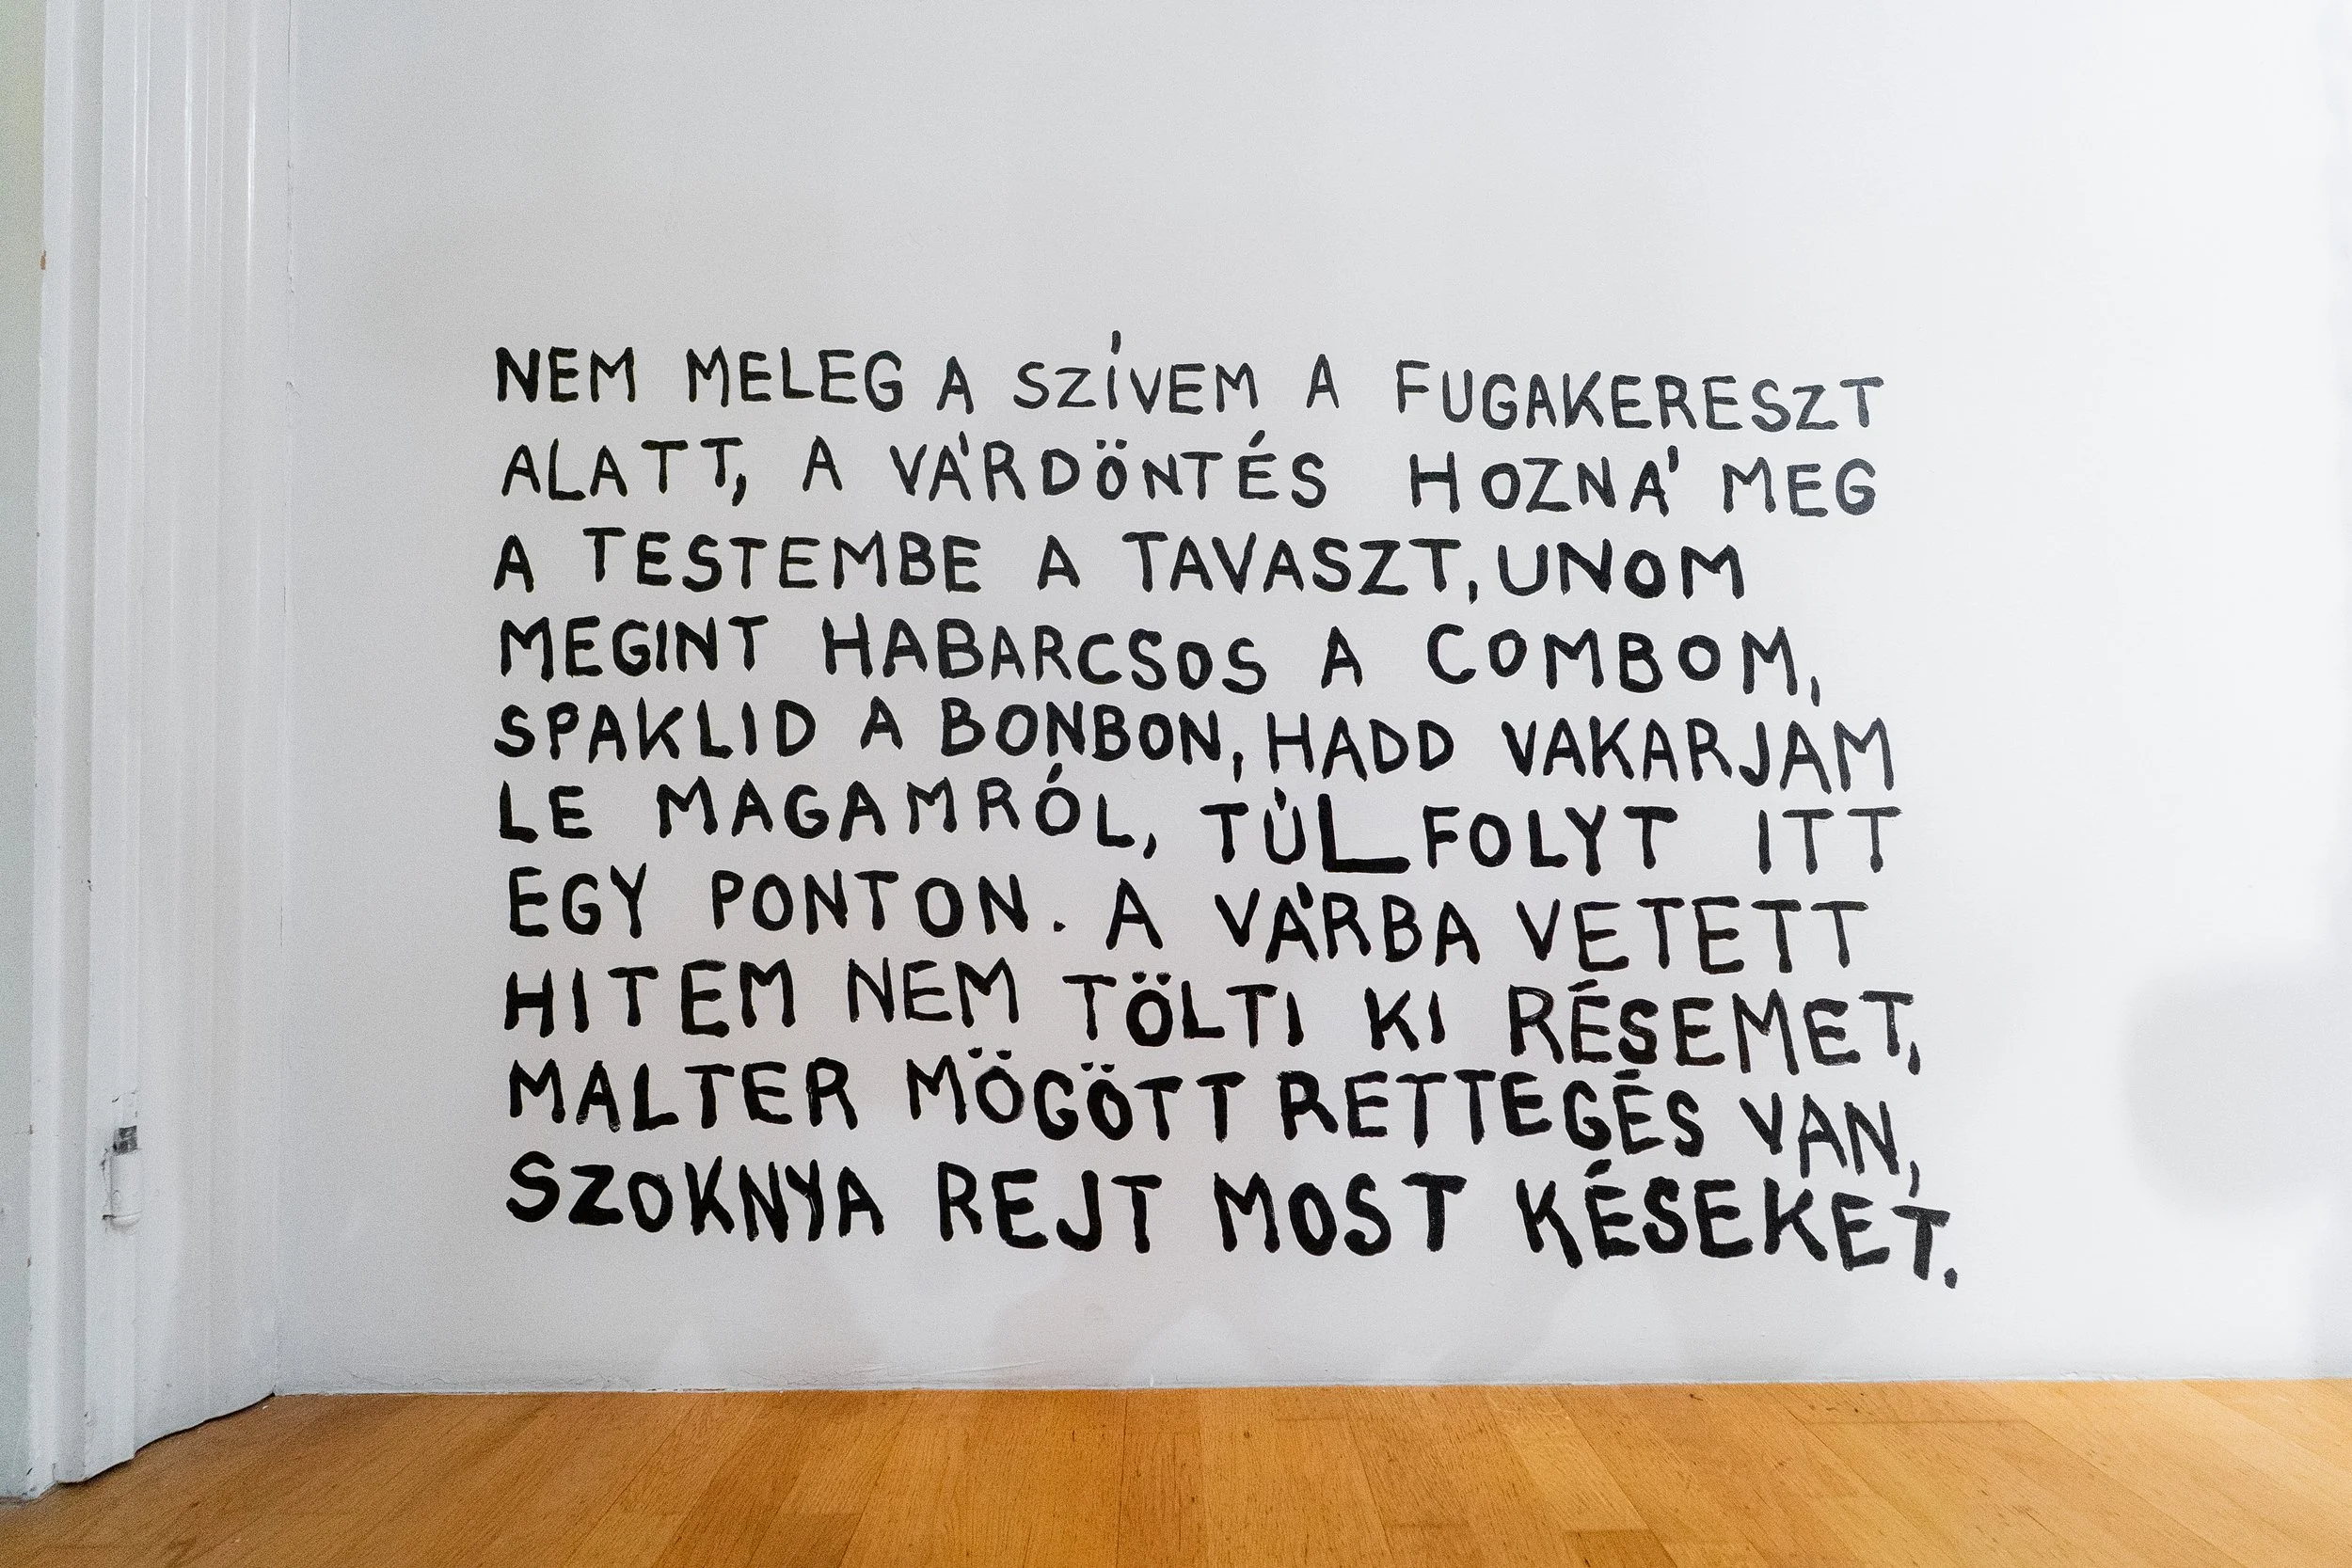 NEM MELEG A SZÍVEM A FUGAKERESZT
ALATT, A VÁRDÖNTÉS HOZNÁ MEG
A TESTEMBE A TAVASZT, UNOM
MEGINT HABARCSOS A COMBOM,
SPAKLID A BONBON, HADD VAKARJAM
LE MAGAMRÓL, TÚL FOLYT ITT
EGY PONTON. A VÁRBA VETETT
HITEM NEM TÖLTI KI RÉSEMET,
MALTER MÖGÖTT RETTEGÉS VAN,
SZOKNYA REJT MOST KÉSEKET.